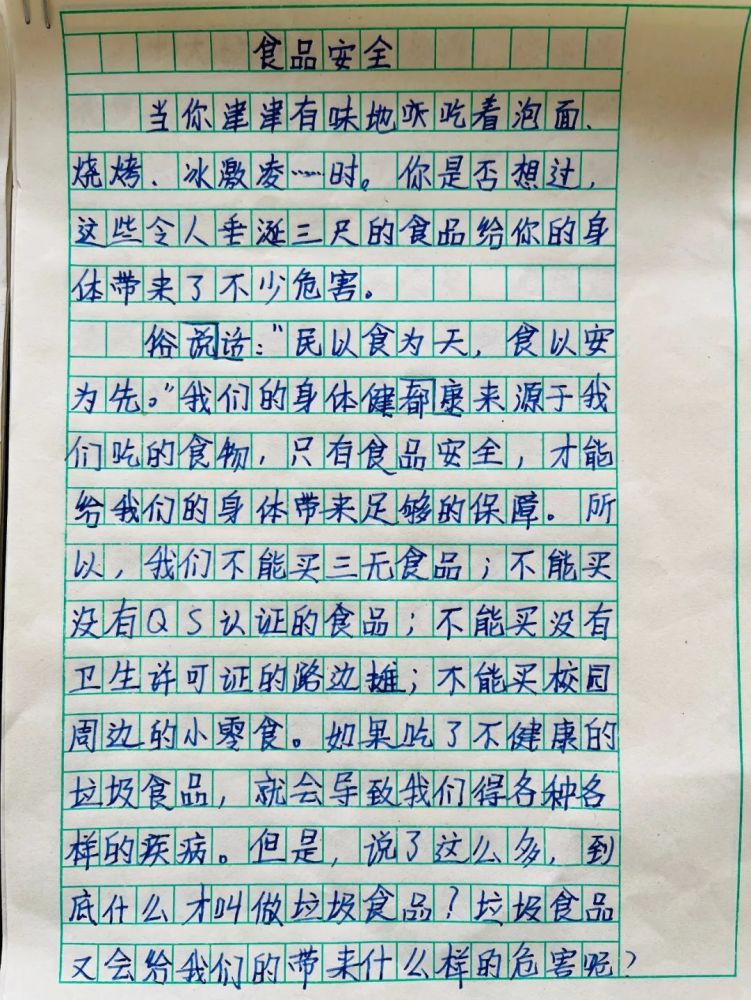 食品安全
当你津津有味地吃着泡面、
烧烤、冰激凌……时。你是否想过，
这些令人垂涎三尺的食品给你的身
体带来了不少危害。
俗说话："民以食为天，食以安
为先。"我们的身体健都康来源于我
们吃的食物，只有食品安全，才能
给我们的身体带来足够的保障。所
以，我们不能买三无食品；不能买
没有QS认证的食品；不能买没有
卫生许可证的路边摊；不能买校园
周边的小零食。如果吃了不健康的
垃圾食品，就会导致我们得各种各
样的疾病。但是，说了这么多，到
底什么才叫做垃圾食品？垃圾食品
又会给我们的带来什么样的危害呢？